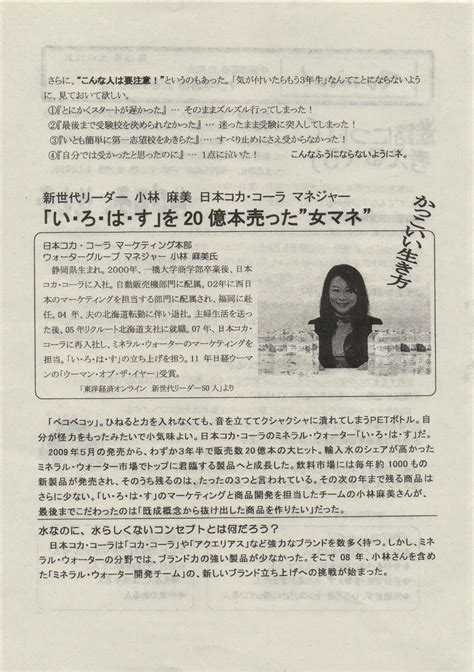 さらに、“こんな人は要注意！”というのもあった。「気が付いたらもう3年生」なんてことにならないよう
に、見ておいて欲しい。
①『とにかくスタートが遅かった』 … そのままズルズル行ってしまった！
②『最後まで受験校を決められなかった』 … 迷ったまま受験に突入してしまった！
③『いとも簡単に第一志望校をあきらた』 … すべり止めにさえ受からなかった！
④『自分では受かったと思ったのに』 … 1点に泣いた！ こんなふうにならないようにネ。
新世代リーダー 小林 麻美 日本コカ・コーラ マネジャー
「い・ろ・は・す」を 20 億本売った”女マネ”
かっこいい生き方
日本コカ・コーラ マーケティング本部
ウォーターグループ マネジャー 小林 麻美氏
静岡県生まれ。2000年、一橋大学商学部卒業後、日本
コカ・コーラに入社。自動販売機部門に配属。02年に西日
本のマーケティングを担当する部門に配属され、福岡に赴
任。04 年、夫の北海道転勤に伴い退社。主婦生活を送っ
た後、05年リクルート北海道支社に就職。07 年、日本コカ・
コーラに再入社し、ミネラル・ウォーターのマーケティングを
担当。「い・ろ・は・す」の立ち上げを担う。11 年日経ウーマ
ンの「ウーマン・オブ・ザ・イヤー」受賞。
「東洋経済オンライン 新世代リーダー50人」より
「ペコペコッ」。ひねると力を入れなくても、音を立ててクシャクシャに潰れてしまうPETボトル。自
分が怪力をもったみたいで小気味よい。日本コカ・コーラのミネラル・ウォーター「い・ろ・は・す」だ。
2009年5月の発売から、わずか3年半で販売数20億本の大ヒット。輸入水のシェアが高かった
ミネラル・ウォーター市場でトップに君臨する製品へと成長した。飲料市場には毎年約 1000 もの
新製品が発売され、そのうち残るのは、たったの3つと言われている。その次の年まで残る商品は
さらに少ない。「い・ろ・は・す」のマーケティングと商品開発を担当したチームの小林麻美さんが、
最後までこだわったのは「既成概念から抜け出した商品を作りたい」だった。
水なのに、水らしくないコンセプトとは何だろう？
日本コカ・コーラは「コカ・コーラ」や「アクエリアス」など強力なブランドを数多く持つ。しかし、ミネ
ラル・ウォーターの分野では、ブランド力の強い製品が少なかった。そこで 08 年、小林さんを含め
た「ミネラル・ウォーター開発チーム」の、新しいブランド立ち上げへの挑戦が始まった。